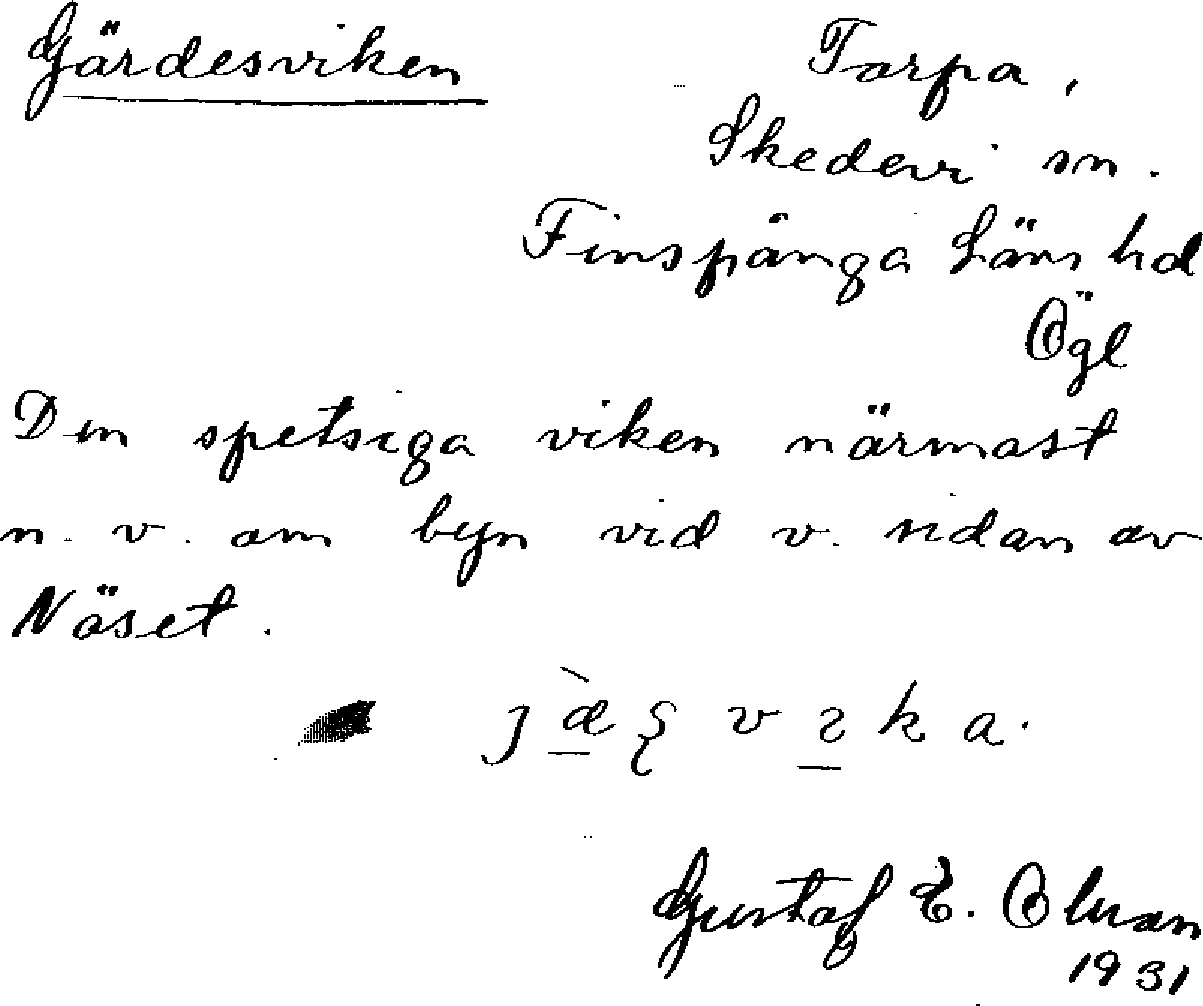 Gärdesviken
Torpa,
Skedevi sn.
Finspånga Läns hd
Ögl
Den spetsiga viken närmast
n. v. om byn vid v. sidan av
Näset.
Gustaf E.
1931